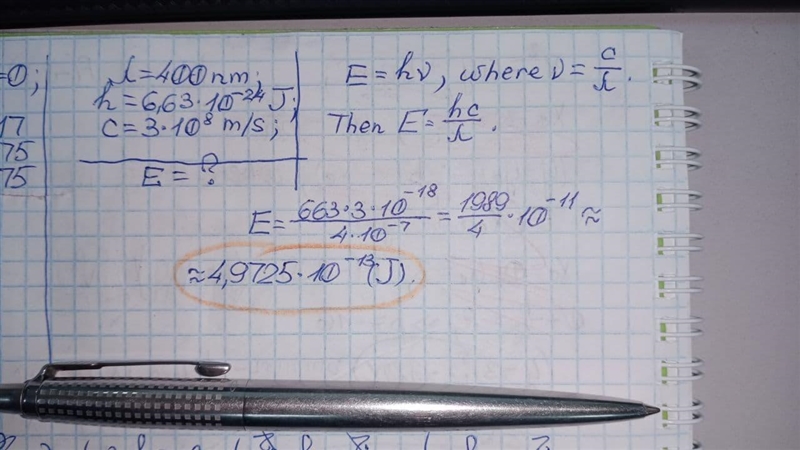 =0;
17
75
75
λ=400nm;
h=6,63·10⁻²⁴ J;
c=3·10⁸ m/s;
E=?
E=hν, where ν=c/λ.
Then E=hc/λ.
E=663·3·10⁻¹⁸/4·10⁻⁷=1989/4·10⁻¹¹≈
≈4,9725·10⁻¹³(J).